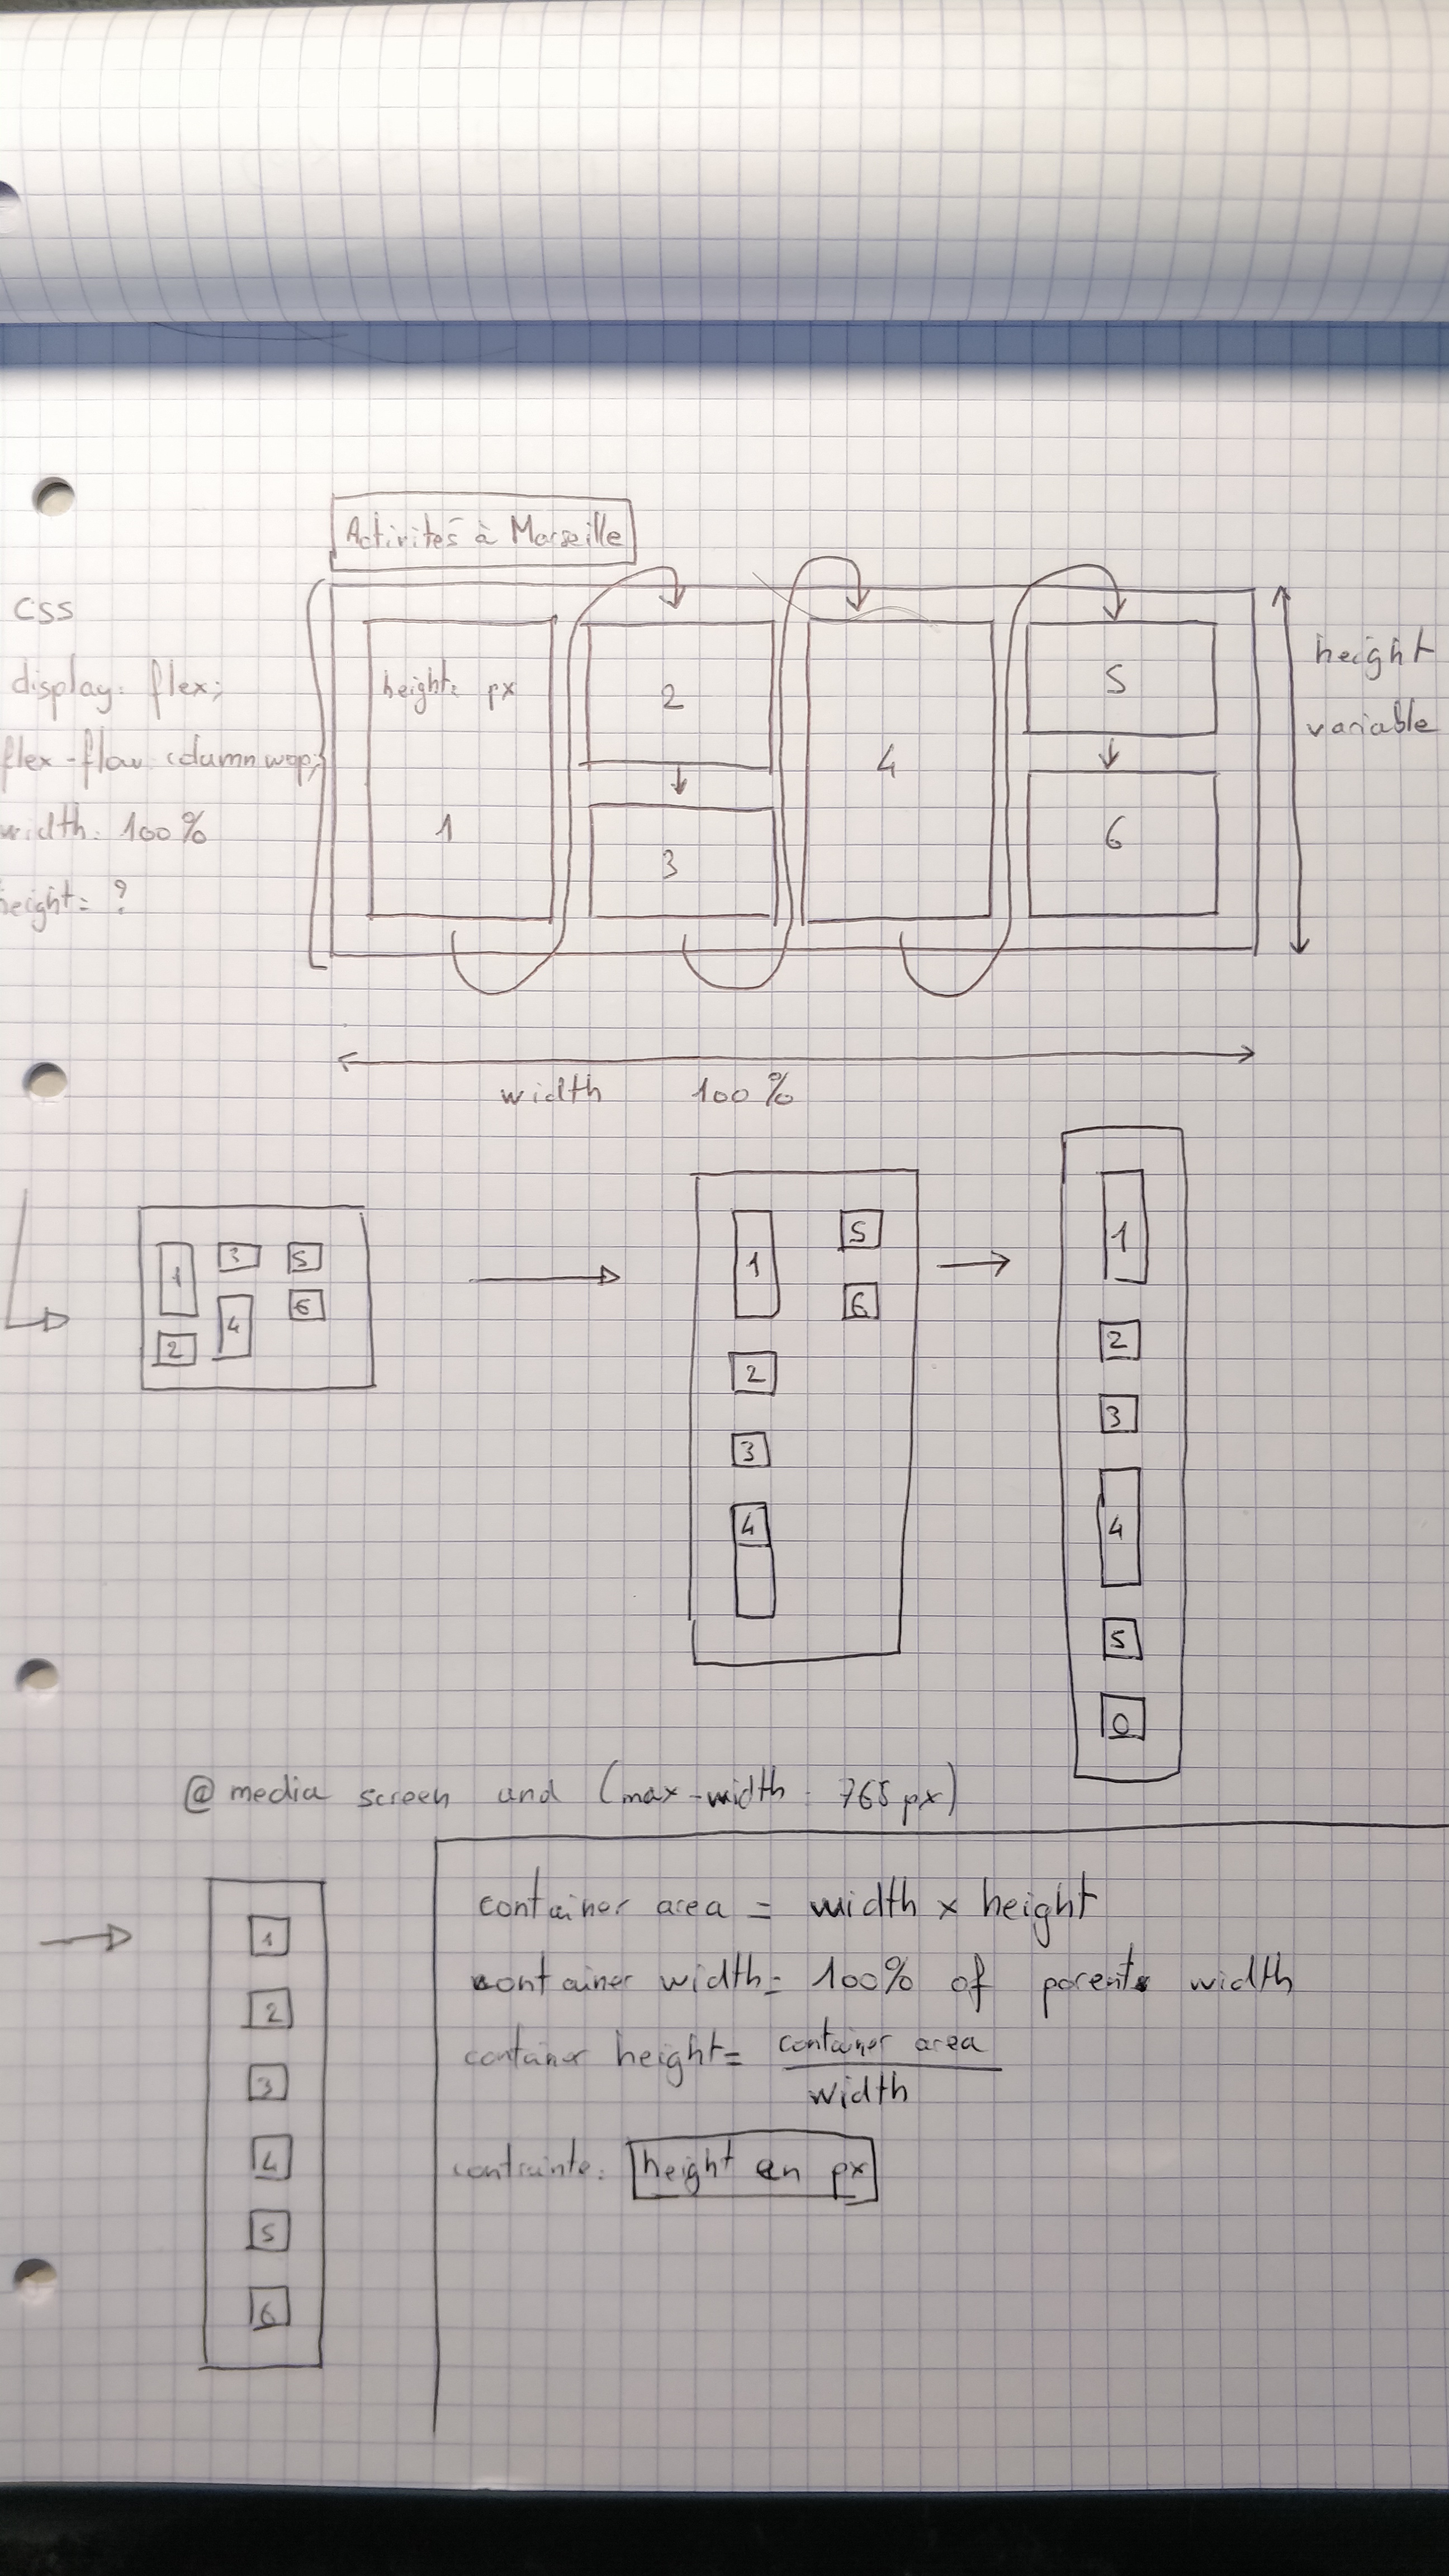 Activités à Marseille
CSS
display: flex;
flex-flow: column wrap;
width: 100%
height = ?
height: px
1
2
3
4
5
6
height
variable
width 100%
1
2
3
4
5
6
1
2
3
4
5
6
1
2
3
4
5
0
@media screen and (max-width: 765px)
1
2
3
4
5
6
container area = width × height
container width = 100% of parent width
container height = container area
width
contrainte: height en px